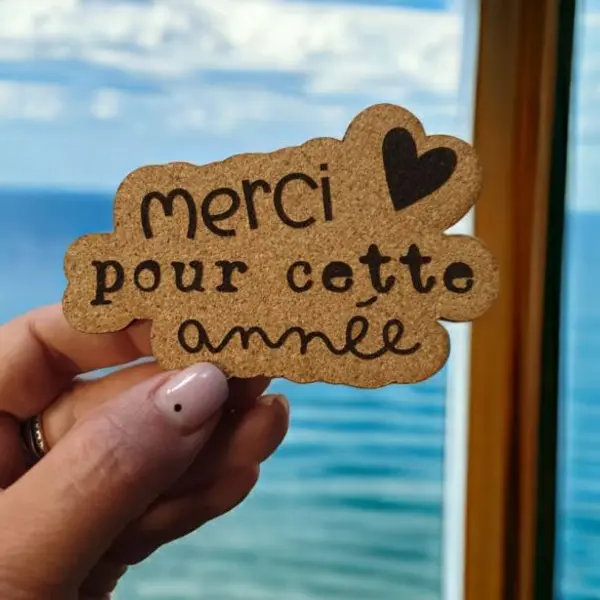 merci
pour cette
année